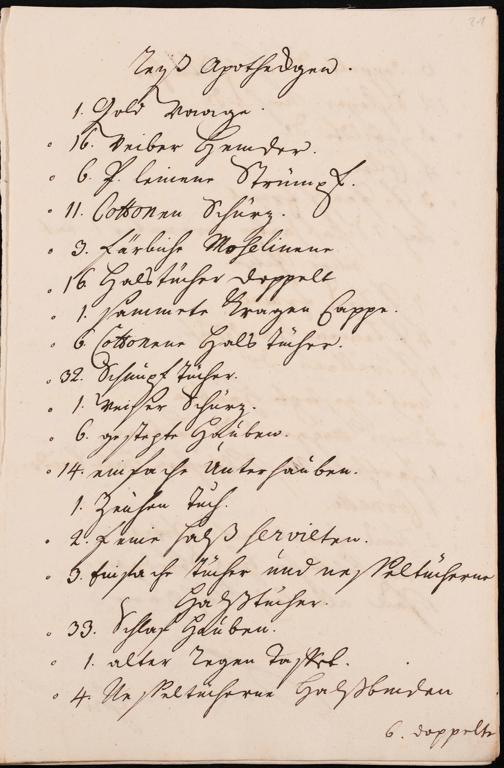 21
Reyß Apothecgen.
1. Gold Waage.
16. Weiber Hemder.
6. P. leinene Strümpf.
11. Cottonen Schürz.
3. färbiche Moßelinene
16 Halstücher doppelt
1. sammete Kragen Cappe.
6 Cottonene Hals Tücher.
32. Schnupf Tücher.
1. Weißer Schurz.
6. gestepte Hauben.
14. einfache Unterhauben.
1. Tuch.
2. feine Halß Servieten.
3. Einfache Tücher und nesseltücherne
Halßtücher.
33. Schlaf Hauben.
1. alter Regen
4. Nesseltücherne Halßbinden
6. doppelte